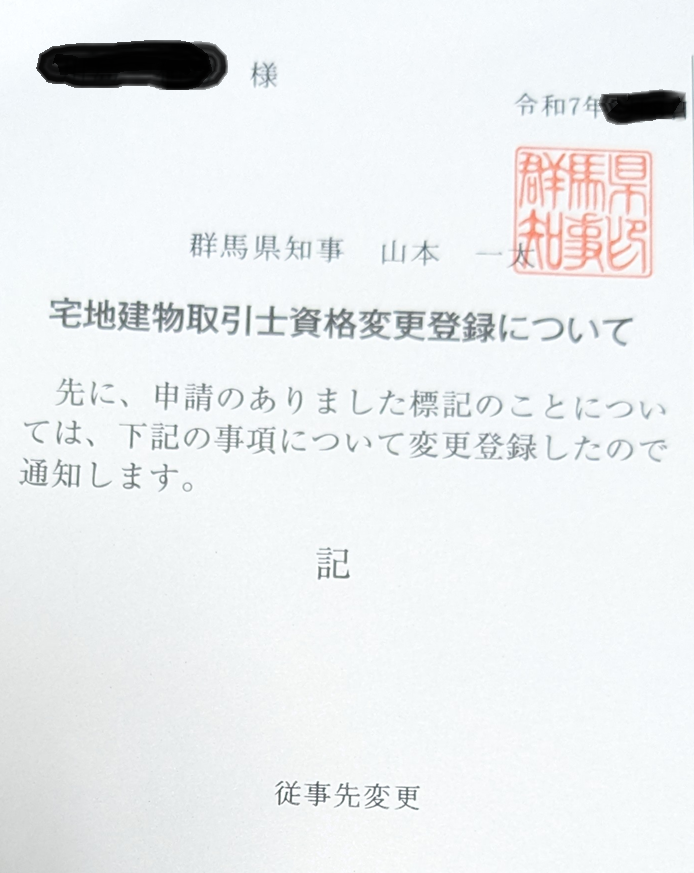 様
令和7年
群馬県知事　山本　一太
群馬県
知事印
宅地建物取引士資格変更登録について
先に、申請のありました標記のことについ
ては、下記の事項について変更登録したので
通知します。
記
従事先変更